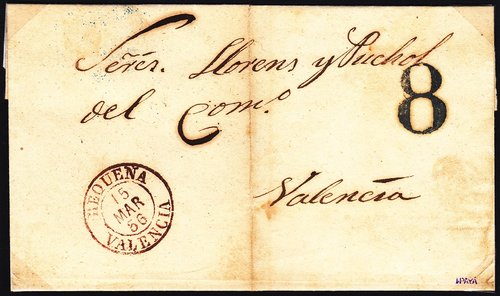 Señres. Llorens y Puchol
del Com.o
8
Valencia
REQUENA
15
MAR
56
VALENCIA